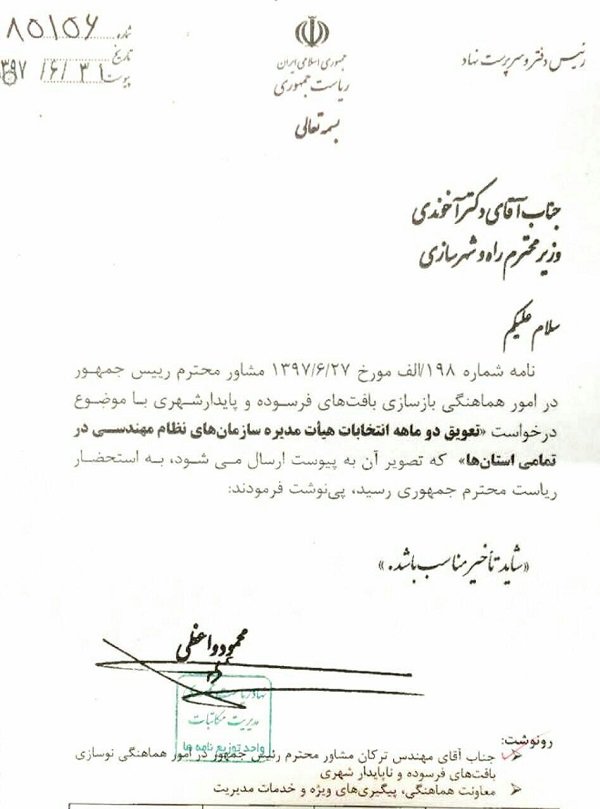 شماره ۸۵۱۵۶
تاریخ ۱۳۹۷/۶/۳۱
پیوست
جمهوری اسلامی ایران
ریاست جمهوری
رئیس دفتر و سرپرست نهاد
بسمه تعالی
جناب آقای دکتر آخوندی
وزیر محترم راه و شهرسازی
سلام علیکم
نامه شماره ۱۹۸/الف مورخ ۱۳۹۷/۶/۲۷ مشاور محترم رییس جمهور
در امور هماهنگی بازسازی بافت‌های فرسوده و پایدارشهری با موضوع
درخواست «تعویق دو ماهه انتخابات هیأت مدیره سازمان‌های نظام مهندسی در
تمامی استان‌ها» که تصویر آن به پیوست ارسال می شود، به استحضار
ریاست محترم جمهوری رسید، پی‌نوشت فرمودند:
«شاید تأخیر مناسب باشد.»
محمود واعظی
نهاد ریاست جمهوری
مدیریت مکاتبات
واحد توزیع نامه ها
رونوشت:
جناب آقای مهندس ترکان مشاور محترم رئیس جمهور در امور هماهنگی نوسازی
بافت‌های فرسوده و ناپایدار شهری
معاونت هماهنگی، پیگیری‌های ویژه و خدمات مدیریت